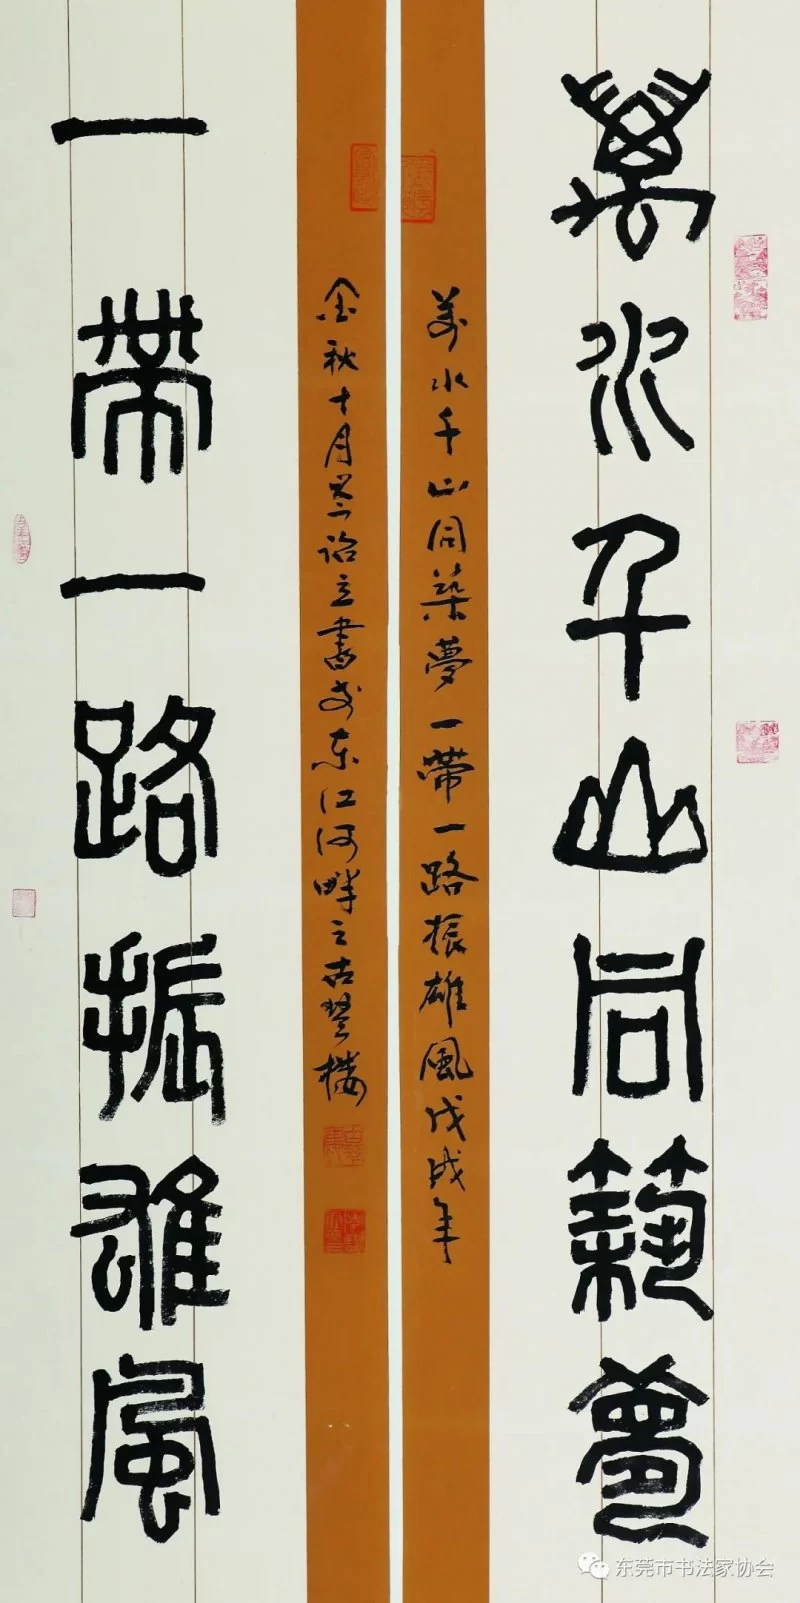 萬水千山同築夢
一帶一路振雄風
萬水千山同築夢一帶一路振雄風戊戌年
金秋十月 立書於東江河畔之古琴樓
东莞市书法家协会